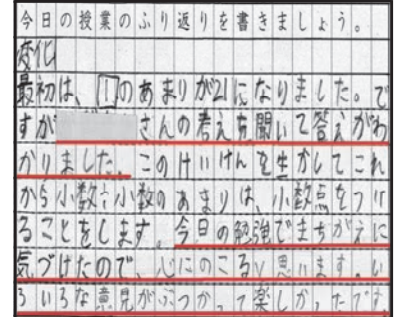 今日の授業のふり返りを書きましょう。
変化
最初は、1のあまりが21になりました。で
すが さんの考えを聞いて答えがわ
かりました。このけいけんを生かしてこれ
から小数÷小数のあまりは、小数点をつけ
ることをします。今日の勉強でまちがえに
気づけたので、心にのこると思います。い
ろいろな意見がぶつかって楽しかったです。